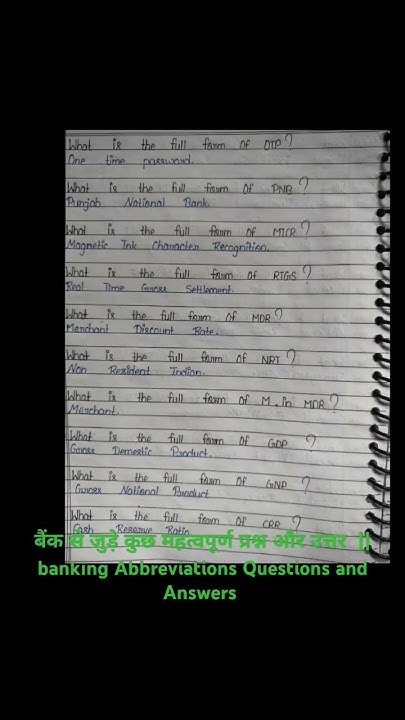 What is the full form of OTP?
One time password.
What is the full form of PNB?
Punjab National Bank.
What is the full form of MICR?
Magnetic Ink Character Recognition.
What is the full form of RTGS?
Real Time Gross Settlement.
What is the full form of MDR?
Merchant Discount Rate.
What is the full form of NRI?
Non Resident Indian.
What is the full form of M. in MDR?
Merchant.
What is the full form of GDP ?
Gross Domestic Product.
What is the full form of GNP ?
Gross National Product
What is the full form of CRR ?
Cash Reserve Ratio
बैंक से जुड़े कुछ महत्वपूर्ण प्रश्न और उत्तर ||
banking Abbreviations Questions and
Answers